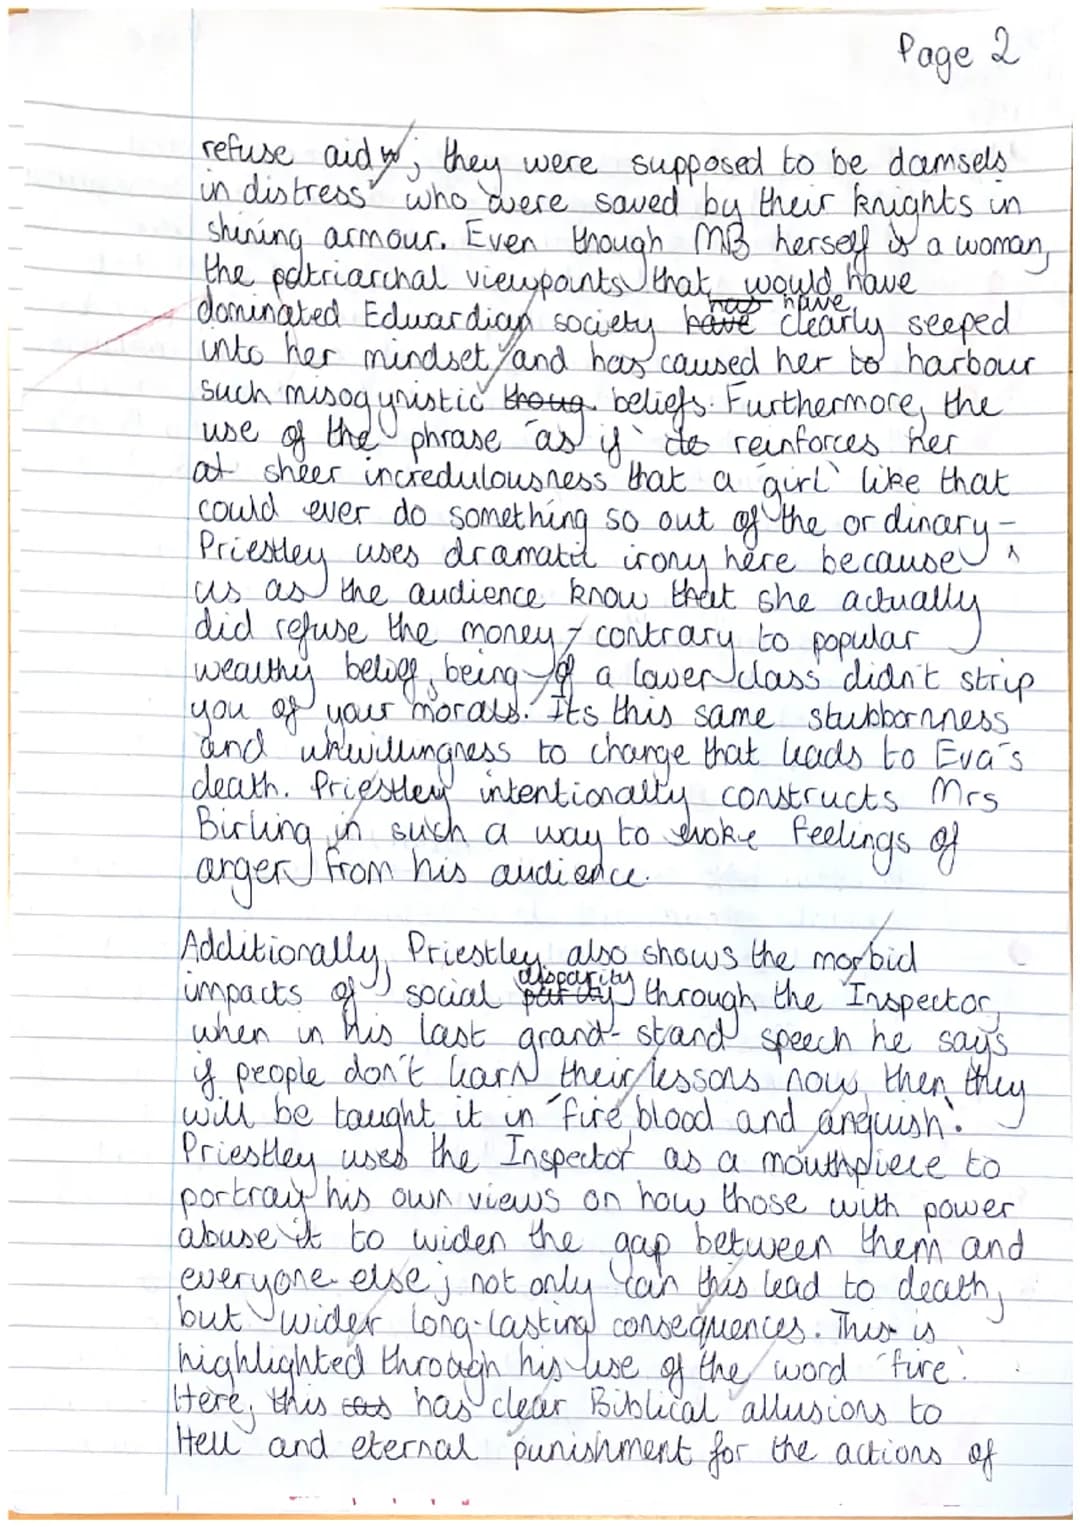 Page 2
refuse aid; they were supposed to be damsels
in distress who were saved by their knights in
shining armour. Even though MB herself is a woman,
the patriarchal viewpoints that would have
has have
dominated Edwardian society have clearly seeped
into her mindset and has caused her to harbour
such misogynistic thoug beliefs. Furthermore, the
use of the phrase 'as if' reinforces her
at sheer incredulousness that a 'girl' like that
could ever do something so out of the ordinary -
Priestley uses dramatic irony here because
us as the audience know that she actually
did refuse the money - contrary to popular
wealthy belief, being of a lower class didn't strip
you of your morals. Its this same stubbornness
and unwillingness to change that leads to Eva's
death. Priestley intentionally constructs Mrs
Birling in such a way to evoke feelings of
anger from his audience.
Additionally, Priestley also shows the morbid
disparity
impacts of social parity through the Inspector,
when in his last grand-stand speech he says
if people don't learn their lessons now, then they
will be taught it in 'fire, blood and anguish'.
Priestley uses the Inspector as a mouthpiece to
portray his own views on how those with power
abuse it to widen the gap between them and
everyone else; not only can this lead to death,
but wider long-lasting consequences. This is
highlighted through his use of the word 'fire'.
Here, this has clear Biblical allusions to
Hell and eternal punishment for the actions of